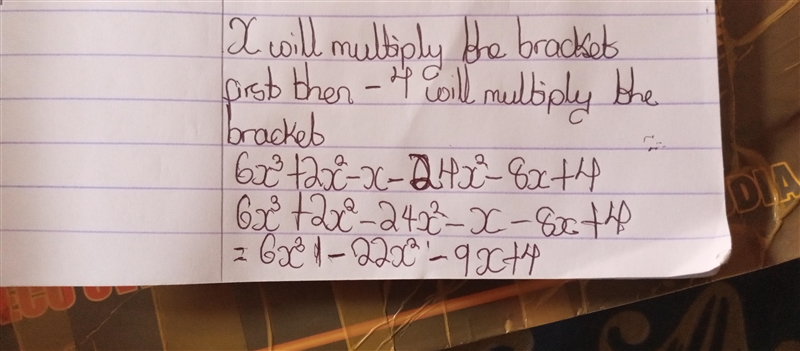 x will multiply the bracket
first then - 4 will multiply the
bracket
6x³+2x²-x-24x²-8x+4
6x³+2x²-24x²-x-8x+4
= 6x³ - 22x² - 9x+4